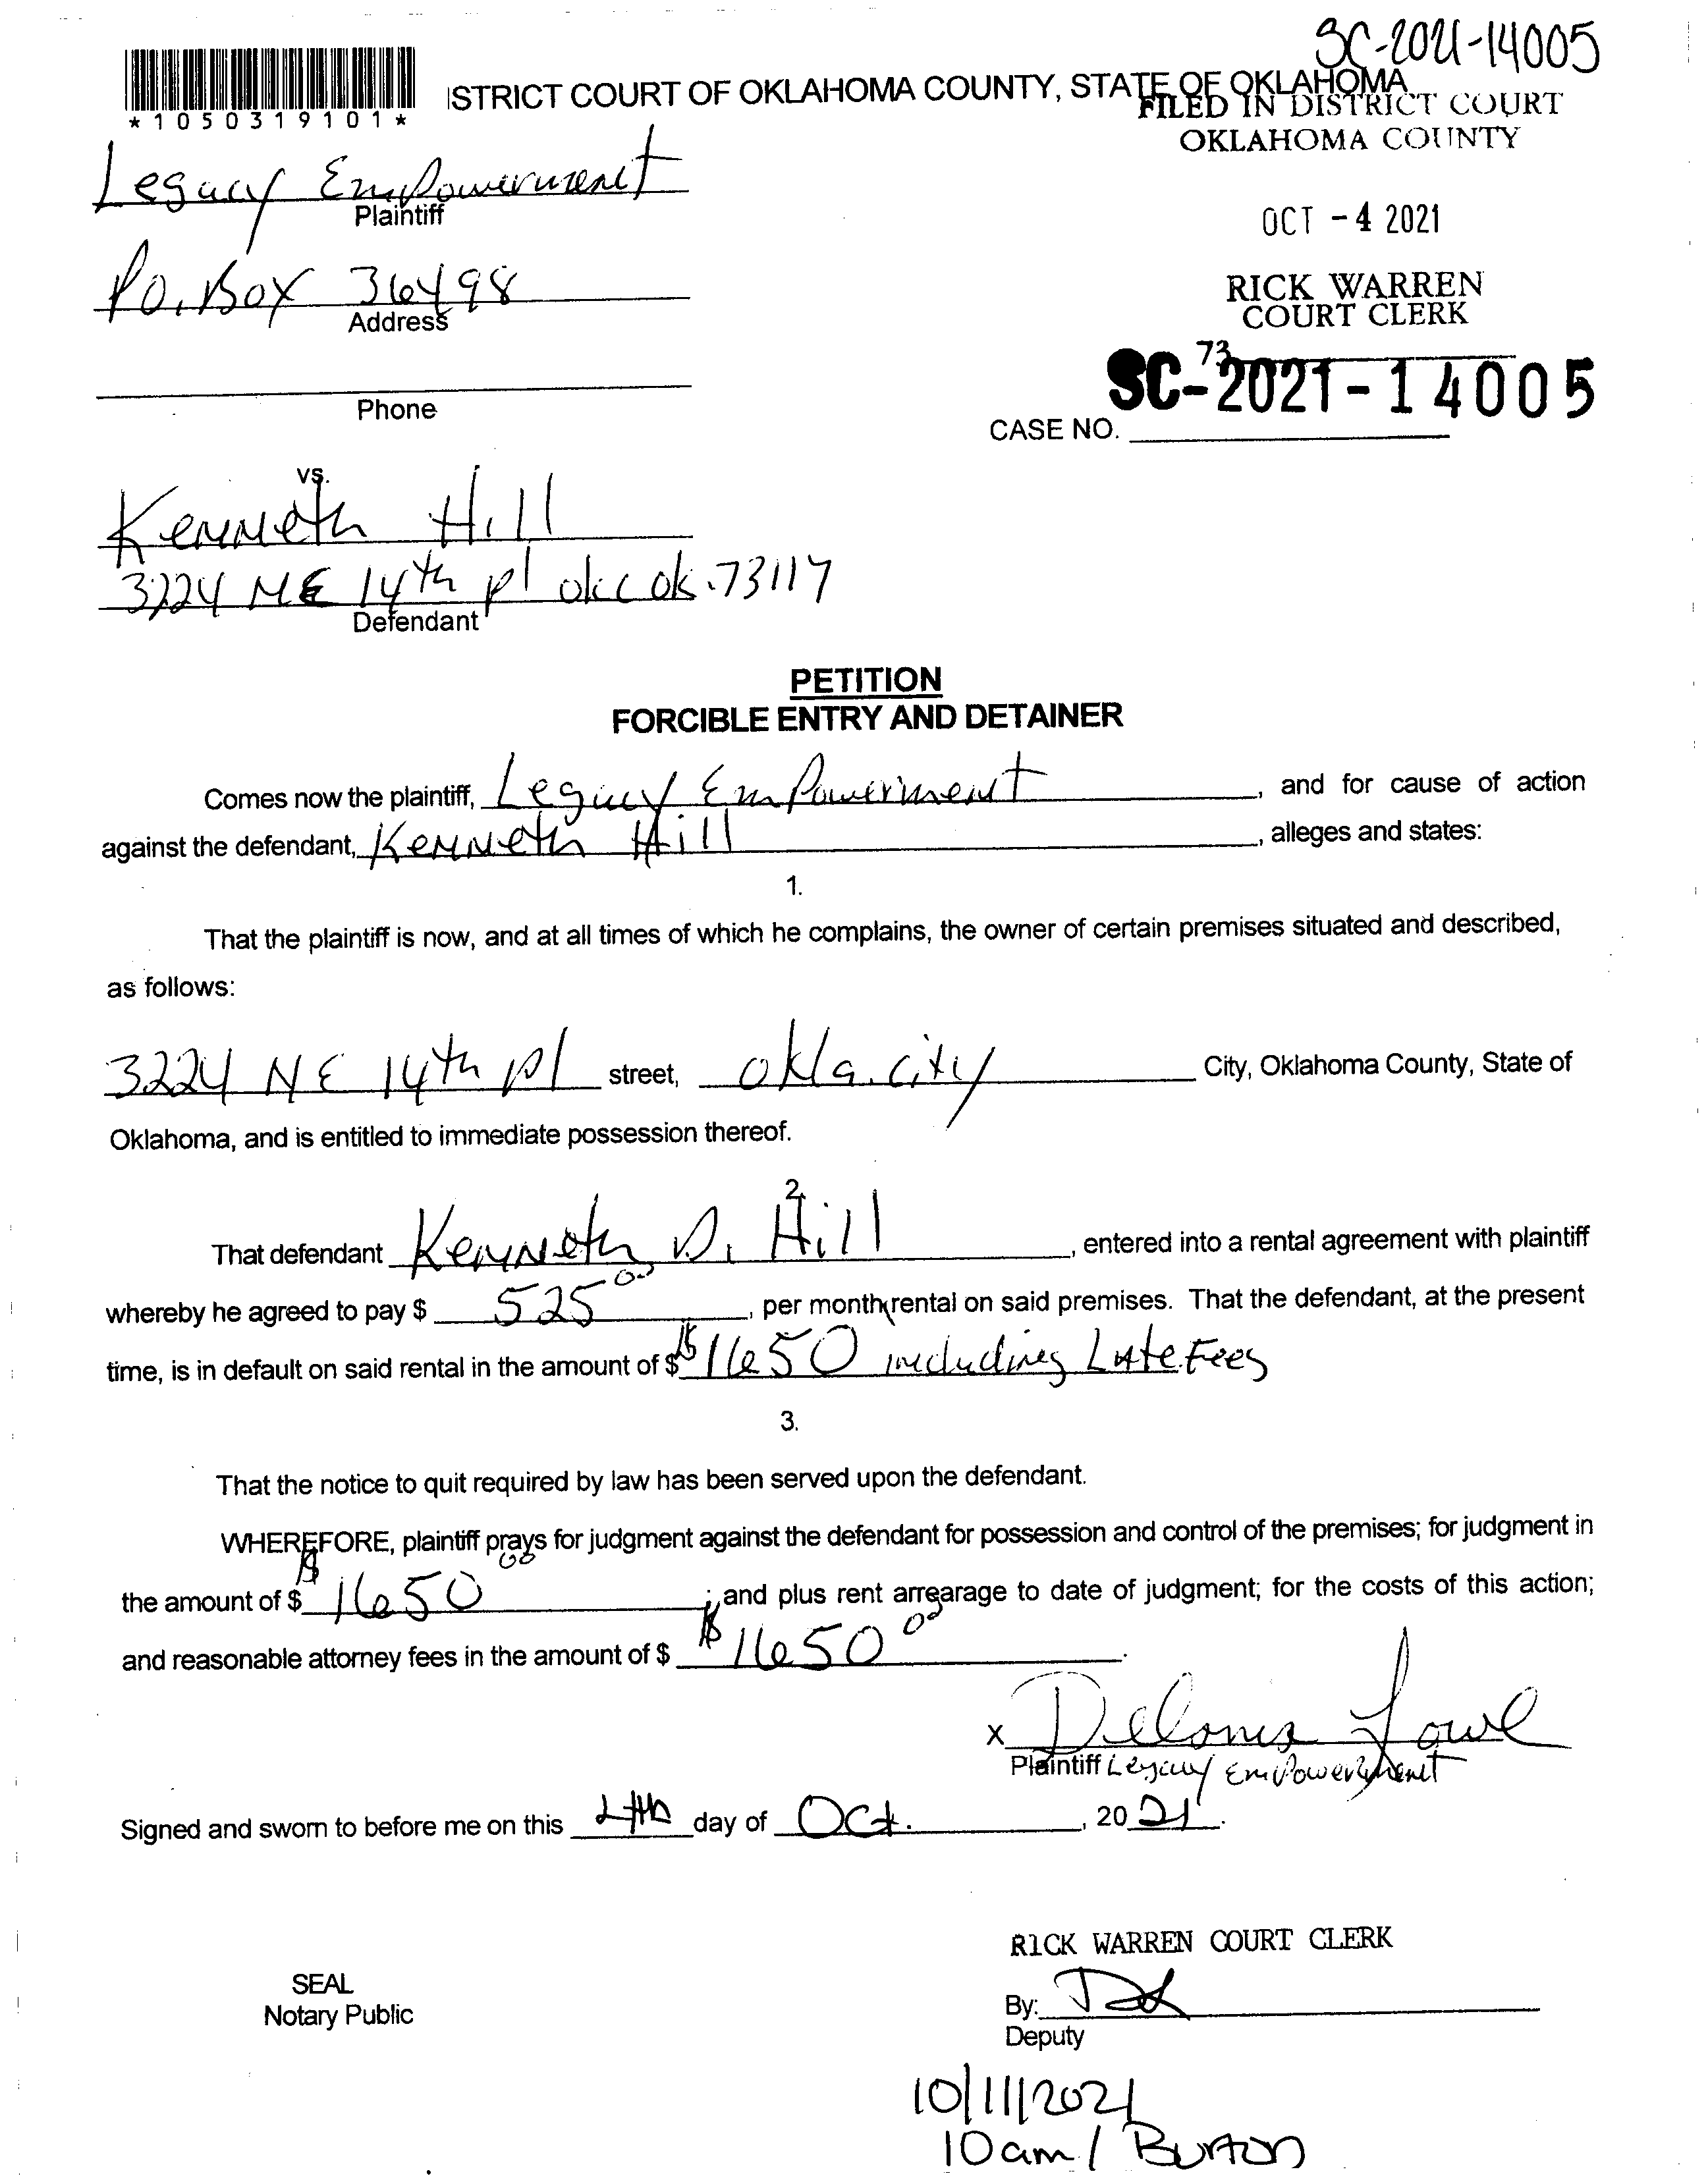 SC-2021-14005
*1050319101*
ISTRICT COURT OF OKLAHOMA COUNTY, STATE OF OKLAHOMA
FILED IN DISTRICT COURT
OKLAHOMA COUNTY
Legacy Empowerment
Plaintiff
OCT - 4 2021
P.O. Box 36498
Address
RICK WARREN
COURT CLERK
73
SC-2021-14005
Phone
CASE NO.
vs.
Kenneth Hill
3224 NE 14th pl okc ok. 73117
Defendant
PETITION
FORCIBLE ENTRY AND DETAINER
Comes now the plaintiff, Legacy Empowerment, and for cause of action
against the defendant, Kenneth Hill, alleges and states:
1.
That the plaintiff is now, and at all times of which he complains, the owner of certain premises situated and described,
as follows:
3224 NE 14th pl street, okla. city City, Oklahoma County, State of
Oklahoma, and is entitled to immediate possession thereof.
2.
That defendant Kenneth D. Hill, entered into a rental agreement with plaintiff
whereby he agreed to pay $ 525 00, per month rental on said premises. That the defendant, at the present
time, is in default on said rental in the amount of $ $1650 including Late Fees
3.
That the notice to quit required by law has been served upon the defendant.
WHEREFORE, plaintiff prays for judgment against the defendant for possession and control of the premises; for judgment in
the amount of $ $1650 00; and plus rent arrearage to date of judgment; for the costs of this action;
and reasonable attorney fees in the amount of $ $1650 00.
X Deloris Lowe
Plaintiff Legacy Empowerment
Signed and sworn to before me on this 4th day of Oct., 2021.
RICK WARREN COURT CLERK
SEAL
Notary Public
By:
Deputy
10/11/2021
10am / Burton